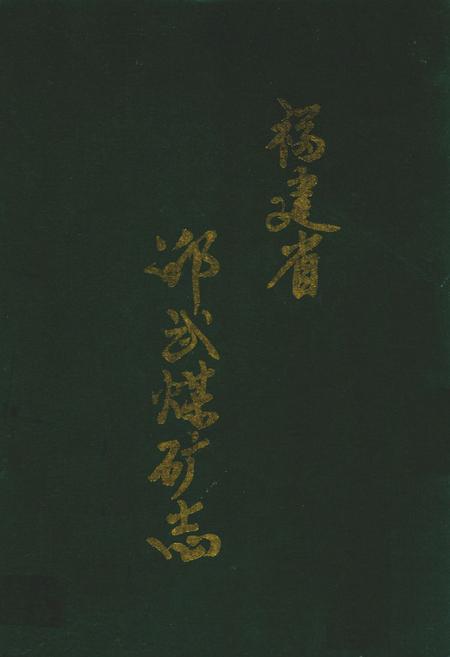 福建省
邵武煤矿志